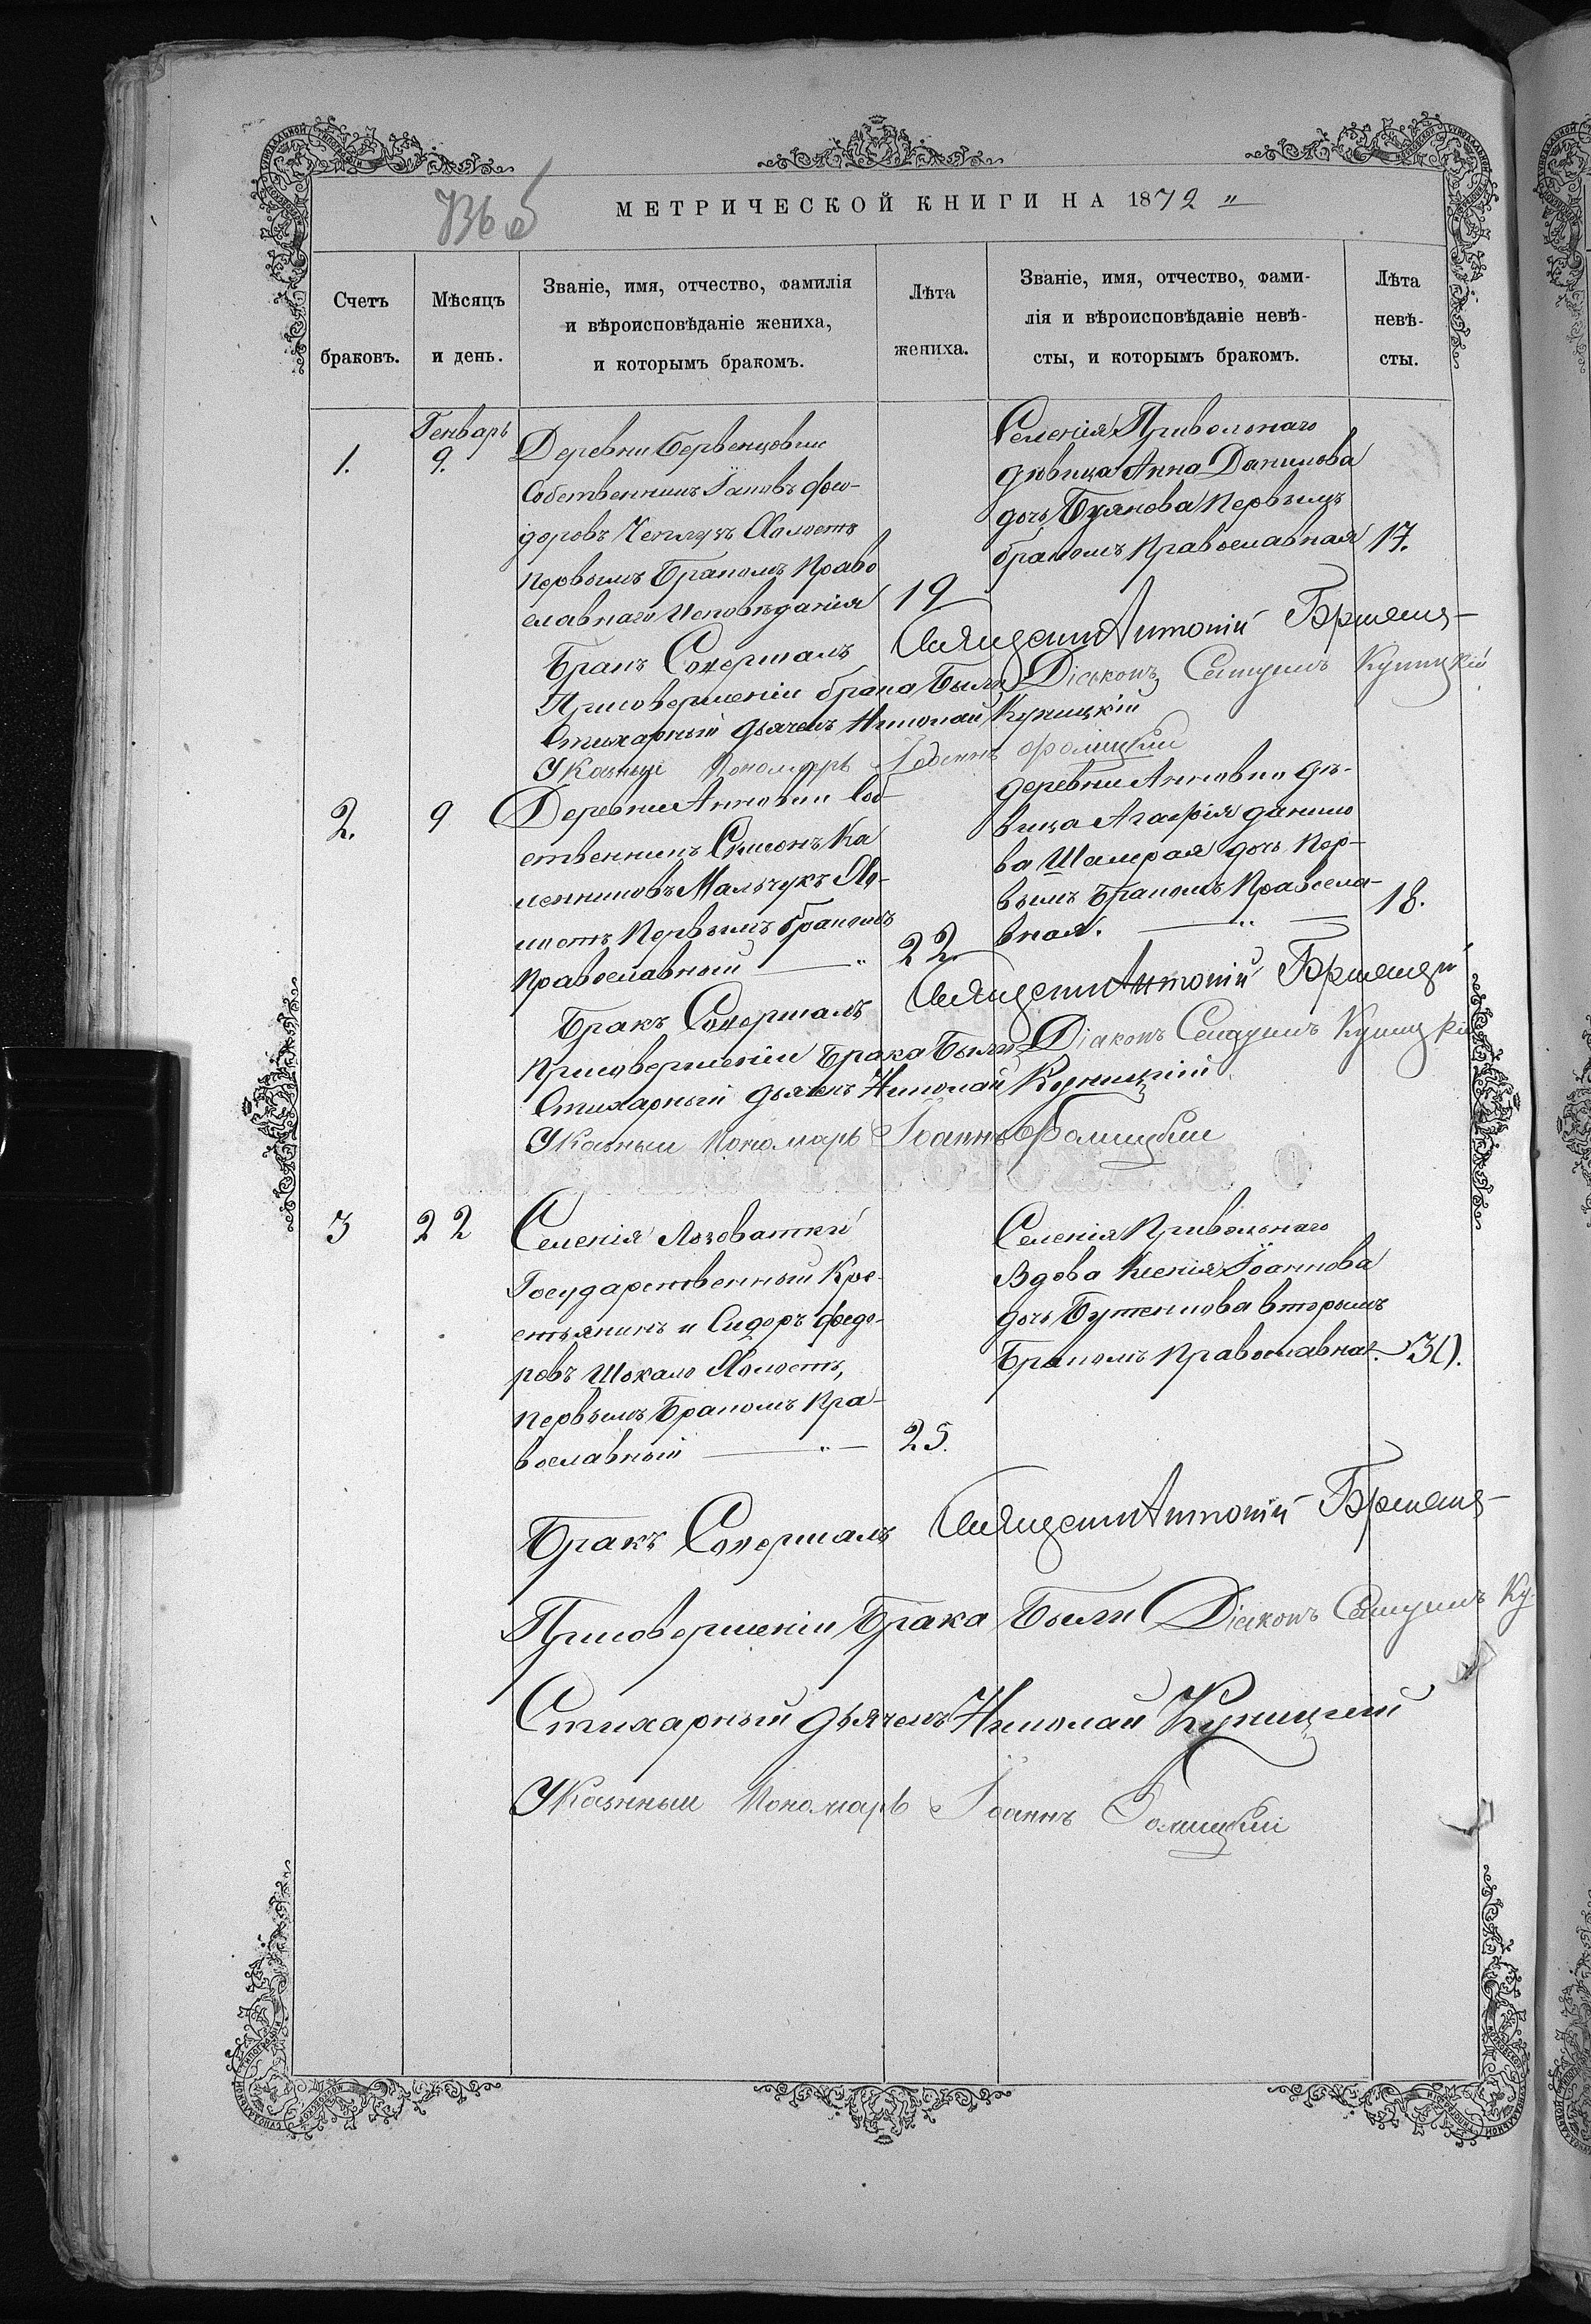 МЕТРИЧЕСКОЙ КНИГИ НА 1872
Счетъ браковъ.
Мѣсяцъ и день.
Званіе, имя, отчество, фамилія
и вѣроисповѣданіе жениха,
и которымъ бракомъ.
Лѣта жениха.
Званіе, имя, отчество, фами-
лія и вѣроисповѣданіе невѣ-
сты, и которымъ бракомъ.
Лѣта невѣ-
сты.
1.
Генварь
9.
Деревни
Собственникъ Іаковъ Фео-
доровъ Холостъ
первымъ бракомъ Право
славнаго Исповѣданія
19
Селенія Привольнаго
дѣвица Анна Данилова
дочь Буянова первымъ
бракомъ Православная
17.
Бракъ Совершалъ Священник Антоній
При совершеніи брака были Діаконъ
Стихарный дьячекъ Николай Куницкій
Указный Пономарь Іоаннъ
2.
9
Деревни Анновки Соб-
ственникъ Симонъ Ка
ленниковъ Мальчукъ Хо-
лостъ Первымъ бракомъ
Православный
22
деревни Анновки дѣ-
вица Агафія данило
ва дочь Пер-
вымъ бракомъ Правосла-
вная.
18.
Бракъ Совершалъ Священник Антоній
При совершеніи Брака были Діаконъ
Стихарный дьячекъ Николай Куницкій
Указный Пономарь Іоаннъ
3
22
Селенія Лозоватки
Государственный Кре-
стьянинъ Сидоръ Федо-
ровъ Шокало Холостъ,
первымъ Бракомъ Пра-
вославный
25.
Селенія Привольнаго
Вдова Ксенія Іоаннова
дочь Бутенкова вторымъ
Бракомъ Православная.
30.
Бракъ Совершалъ Священник Антоній
При совершеніи Брака были Діаконъ
Стихарный дьячекъ Николай Куницкій
Указный Пономарь Іоаннъ